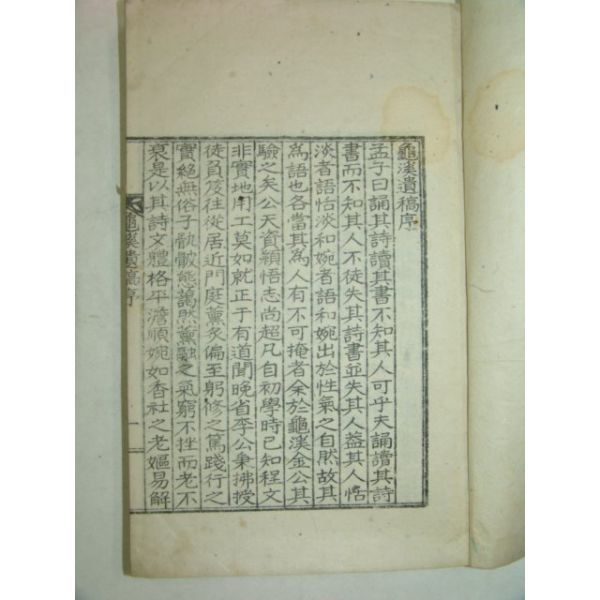 龜溪遺稿序
孟子曰誦其詩讀其書不知其人可乎夫誦讀其詩
書而不知其人不徒失其詩書並失其人益其人恬
淡者語恬淡和婉者語和婉出於性氣之自然故其
爲語也各當其爲人有不可掩者余於龜溪金公其
驗之矣公天資穎悟志尚超凡自初學時已知程文
非實地用工莫如就正于有道聞晩省李公秉拂授
徒負笈往從居近門庭薰炙偏至躬修之篤踐行之
實絶無俗子骩骳態藹然薰融之氣窮不挫而老不
衰是以其詩文體格平澹順婉如香社之老嫗易解
龜溪遺稿序
一